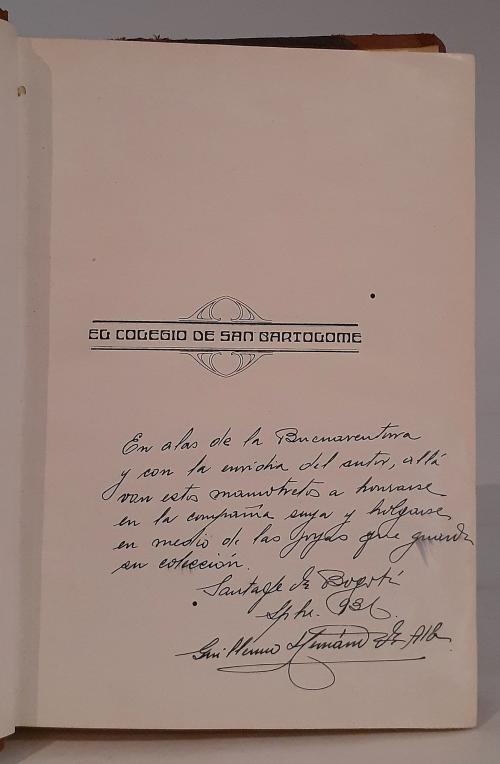 EL COLEGIO DE SAN BARTOLOME
En alas de la Buenaventura
y con la envidia del autor, allá
van estos mamotretos a honrarse
en la compañia suya y holgarse
en medio de las joyas que guarda
su colección.
Santafe de Bogotá
Spbre. 936.
Guillermo Hernández de Alba